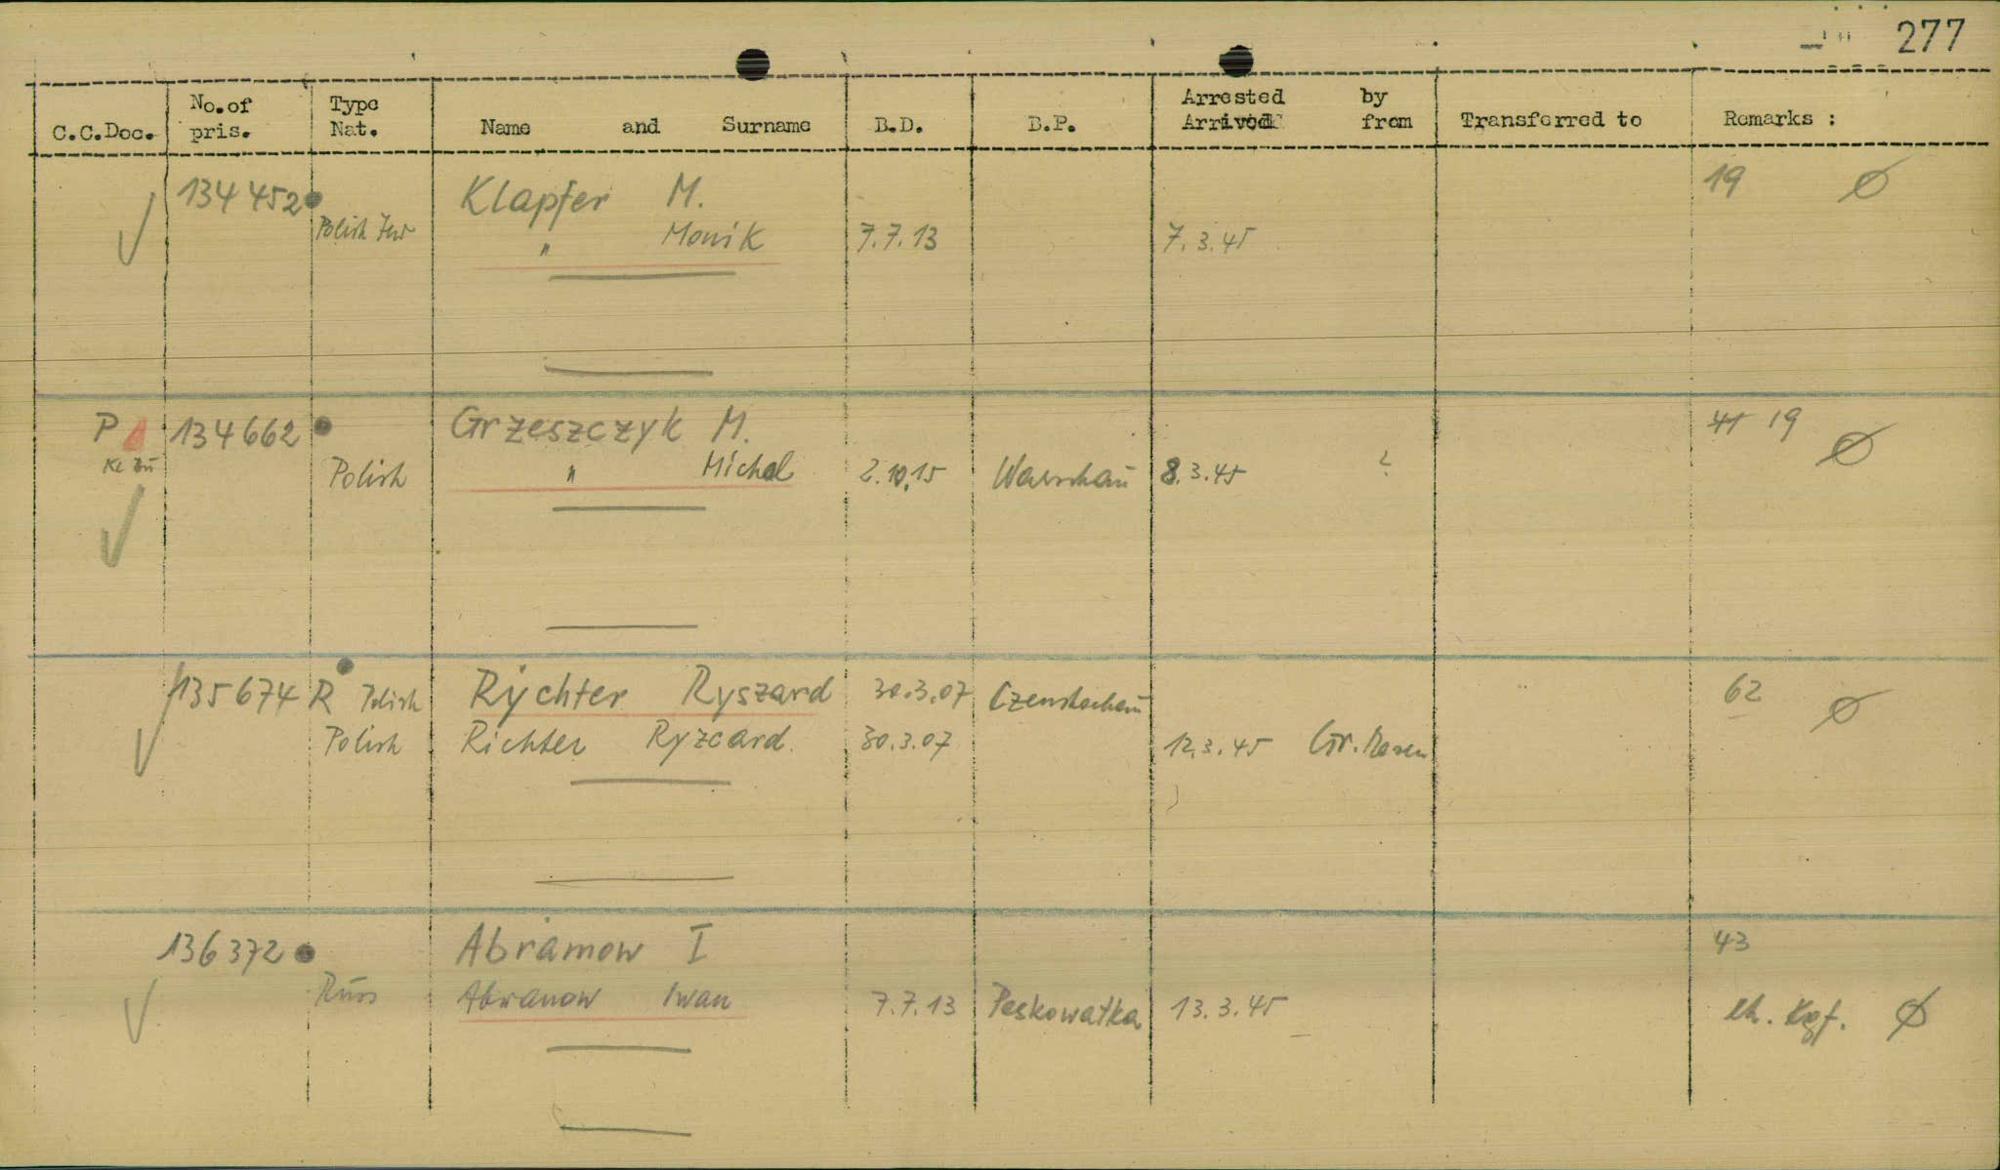 277
C.C.Doc. No.of pris. Type Nat. Name and Surname B.D. B.P. Arrested by Arrived from Transferred to Remarks :
134 452 Klapfer M. 19 Ø
Polish Jew " Monik 7.7.13 7.3.45
P 134662 Grzeszczyk M. 41 19 Ø
Polish " Michal 2.10.15 Warschau 8.3.45 ?
135674 R Polish Rychter Ryszard 30.3.07 Czenstochau 62 Ø
Polish Richter Ryzcard. 30.3.07 12.3.45 Gr. Rosen
136372 Abramow I 43
Russ Abranow Iwan 7.7.13 Peskowatka 13.3.45 eh. Kgf. Ø